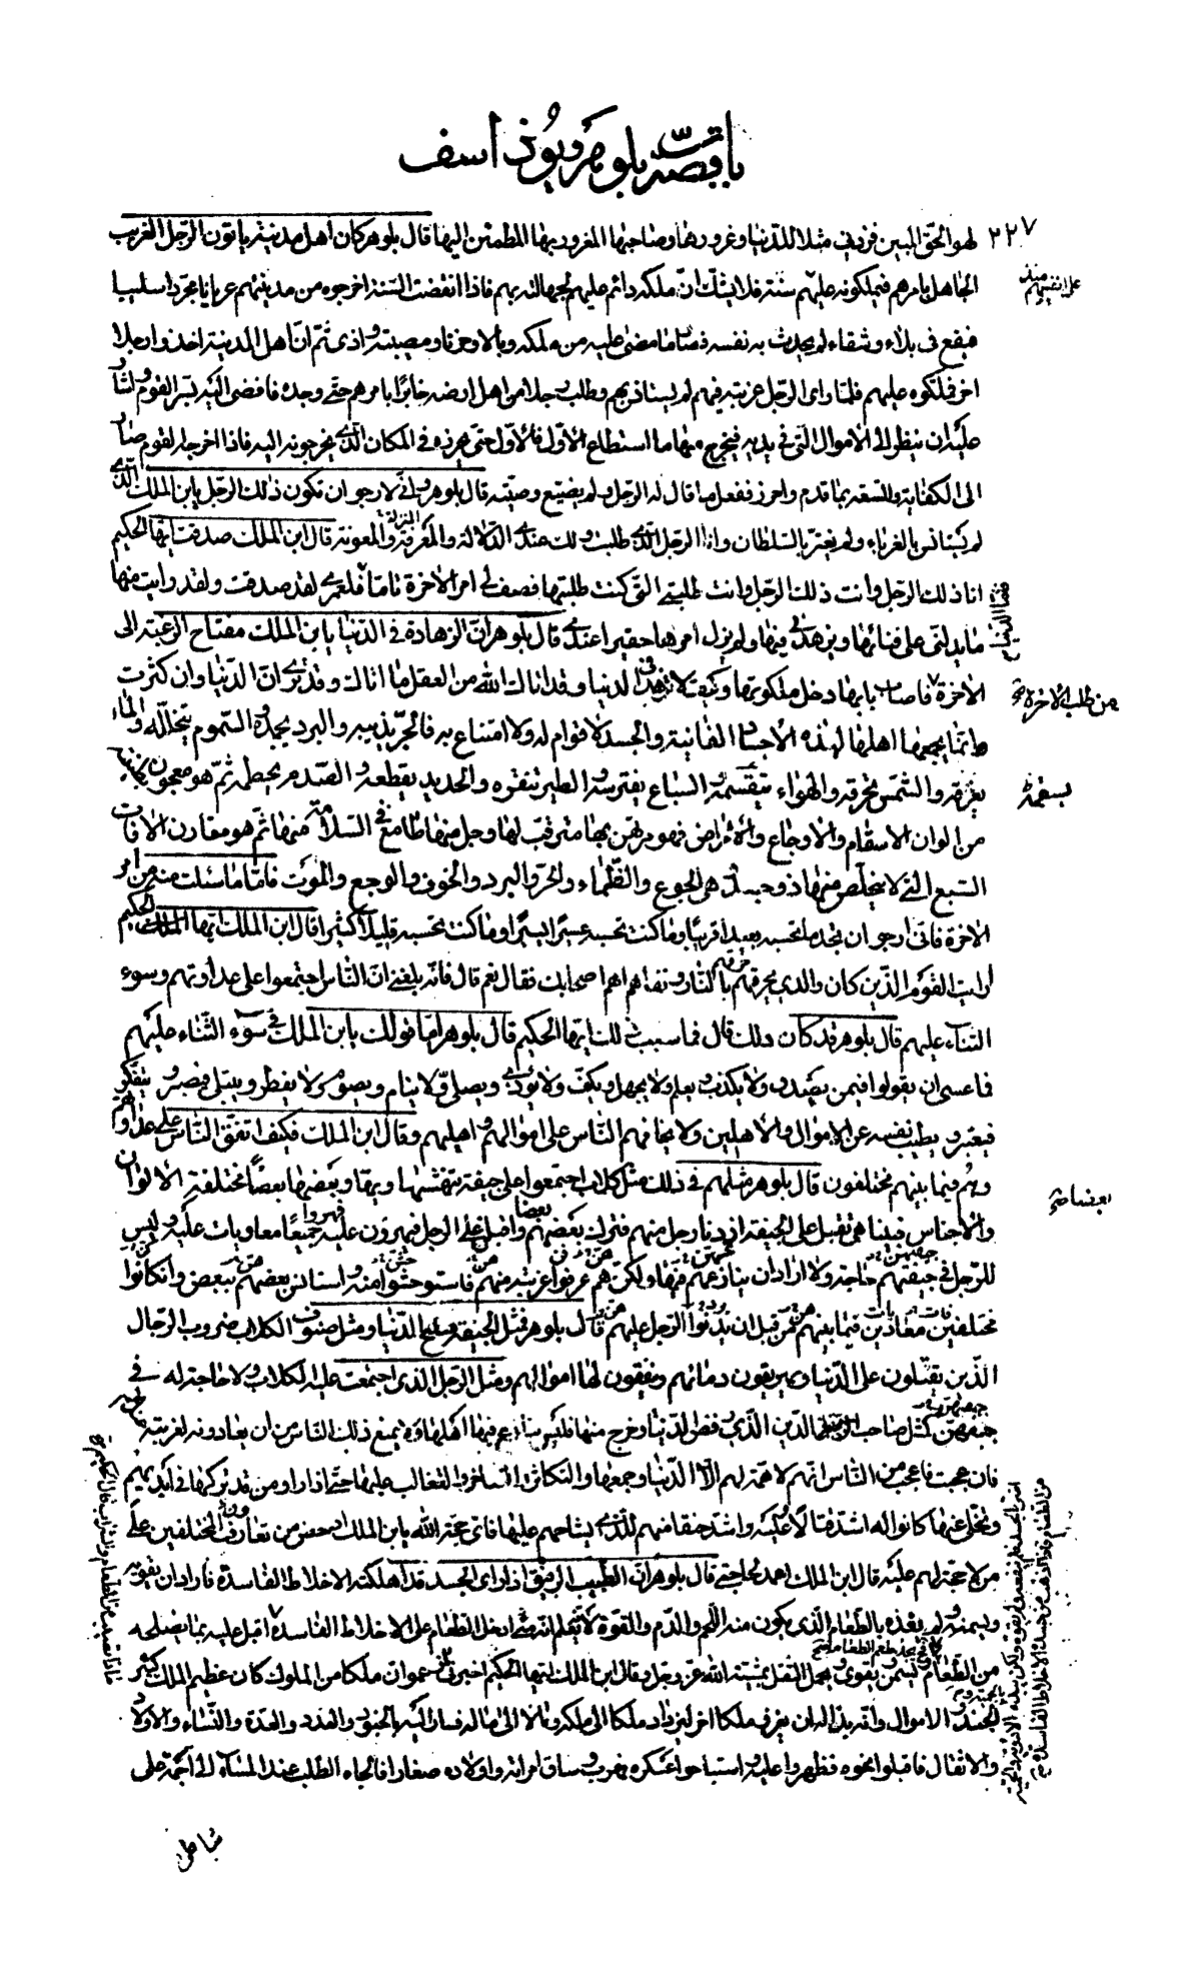 باب قصة بلوهر ويوذاسف
٢٢٧
لهو الحق المبين فزدني مثلا للدنيا وغرورها وصاحبها المغرور بها المطمئن اليها قال بلوهر كان اهل مدينة ياتون الرجل الغريب
الجاهل بامرهم فيملكونه عليهم سنة فلا يشك ان ملكه دائم عليهم لجهالته بهم فاذا انقضت السنة اخرجوه من مدينتهم عريانا مجردا سليبا
فيقع في بلاء وشقاء لم يحدث به نفسه فصار ما مضى عليه من ملكه وبالا وحزنا ومصيبة واذى ثم ان اهل المدينة اخذوا رجلا
اخر فملكوه عليهم فلما راى الرجل غربته فيهم لم يستانس بهم وطلب رجلا من اهل ارضه خابرا بامرهم حتى وجده فافضى اليه بسر القوم واشار
عليه ان ينظر الى الاموال التي في يديه فيخرج منها ما استطاع الاول فالاول حتى يحرزه في المكان الذي يخرجونه اليه فاذا اخرجه القوم صار
الى الكفاية والسعة بما قدم واحرز ففعل ما قال له الرجل ولم يضيع وصيته قال بلوهر واني لارجو ان تكون ذلك الرجل يا بن الملك الذي
لم يستانس بالغرباء ولم يغتر بالسلطان وانا الرجل الذي طلبت ولك عندي الدلالة والمعرفة والمعونة قال ابن الملك صدقت ايها الحكيم
انا ذلك الرجل وانت ذلك الرجل وانت طلبتي التي كنت طلبتها فصف لي امر الاخرة تاما فلعمري لقد صدقت ولقد رايت منها
ما يدلني على فنائها ويزهدني فيها ولم يزل امرها حقيرا عندي قال بلوهر ان الزهادة في الدنيا يا بن الملك مفتاح الرغبة الى
الاخرة فاصاب بابها دخل ملكوتها وكيف لا تزهد في الدنيا وقد اتاك الله من العقل ما اتاك وقد ترى ان الدنيا وان كثرت
وانما يجمعها اهلها لهذه الاجساد الفانية والجسد لا قوام له ولا امتناع به فالحر يذيبه والبرد يجمده والسموم يتخلله والماء
يغرقه والشمس تحرقه والهواء يتقسمه والسباع يفترسه والطير تنقره والحديد يقطعه والصدم يحطمه ثم هو معجون بطينة
من الوان الاسقام والاوجاع والامراض فهو مرتهن بها مترقب لها وجل منها طامع في السلامة منها ثم هو مقارن الافات
السبع التي لا يتخلص منها ذو جسد هي الجوع والظماء والحر والبرد والخوف والوجع والموت فاما ما سئلت منه من امر
الاخرة فاني ارجو ان تجد ما تحسبه بعيدا قريبا وما كنت تحسبه عسيرا يسيرا وما كنت تحسبه قليلا كثيرا قال ابن الملك ايها الحكيم
ارايت القوم الذين كان والدي حرقهم بالنار ونفاهم اهم اصحابك فقال نعم قال فانه بلغني ان الناس اجتمعوا على عداوتهم وسوء
الثناء عليهم قال بلوهر قد كان ذلك قال فما سبب ذلك ايها الحكيم قال بلوهر اما قولك يا بن الملك في سوء الثناء عليهم
فما عسى ان يقولوا فيمن يصدق ولا يكذب ويعلم ولا يجهل ويكف ولا يؤذي ويصلي ولا ينام ويصوم ولا يفطر ويبتلى فيصبر ويتفكر
فيعتبر ويطيب نفسه عن الاموال والاهلين ولا يخافهم الناس على اموالهم واهليهم وقال ابن الملك فكيف اتفق الناس على عداوتهم
وهم فيما بينهم مختلفون قال بلوهر مثلهم في ذلك مثل كلاب اجتمعوا على جيفة تنهشها ويهار بعضها بعضا مختلفة الالوان
والاجناس فبينا هي تقبل على الجيفة اذ دنا رجل منهم فترك بعضهم بعضا واقبلن على الرجل فيهرون عليه جميعا معاويات عليه وليس
للرجل في جيفتهم حاجة ولا اراد ان ينازعهم فيها ولكن هم عرفوا غربته منهم فاستوحشوا منه واستانس بعضهم ببعض وان كانوا
مختلفين معادين فيما بينهم من قبل ان يدنو الرجل عليهم قال بلوهر فمثل الجيفة متاع الدنيا ومثل صنوف الكلاب ضروب الرجال
الذين يقتتلون على الدنيا ويهريقون دمائهم وينفقون لها اموالهم ومثل الرجل الذي اجتمعت عليه الكلاب ولا حاجة له في
جيفتهن كمثل صاحب الدين الذي رفض الدنيا وخرج منها فليس ينازع فيها اهلها ولا يمنع ذلك الناس من ان يعادونه لغربته عندهم
فان عجبت فاعجب من الناس انهم لا همة لهم الا الدنيا وجمعها والتكاثر والتفاخر والتغالب عليها حتى اذا راوا من قد تركها في ايديهم
وتخلى عنها كانوا له اشد قتالا عليه واشد حنقا منهم للذي يشاحهم عليها فاي حجة لله يا بن الملك ادحض من تعاون المختلفين على
من لا حجة لهم عليه قال ابن الملك اعمد لحاجتي قال بلوهر ان الطبيب الرفيق اذا راى الجسد قد اهلكته الاخلاط الفاسدة فاراد ان يقويه
ويسمنه لم يغذه بالطعام الذي يكون منه اللحم والدم والقوة لانه يعلم انه متى ادخل الطعام على الاخلاط الفاسدة اقبل عليه بما يصلحه
من الطعام وسمن وقوى ويحمل الثقل بمشية الله عز وجل وقال ابن الملك ايها الحكيم اخبرني زعموا ان ملكا من الملوك كان عظيم الملك كثير
الجند والاموال وانه بدا له ان يغزو ملكا اخر ليزداد ملكا الى ملكه ومالا الى ماله فسار اليه بالجنود والعدد والعدة والنساء والاولاد
والاثقال فاقبلوا نحوه فظهروا عليه واستباحوا عسكره فهرب وساق امراته واولاده صغارا فالجاه الطلب عند المساء الى اجمة على
شاطئ